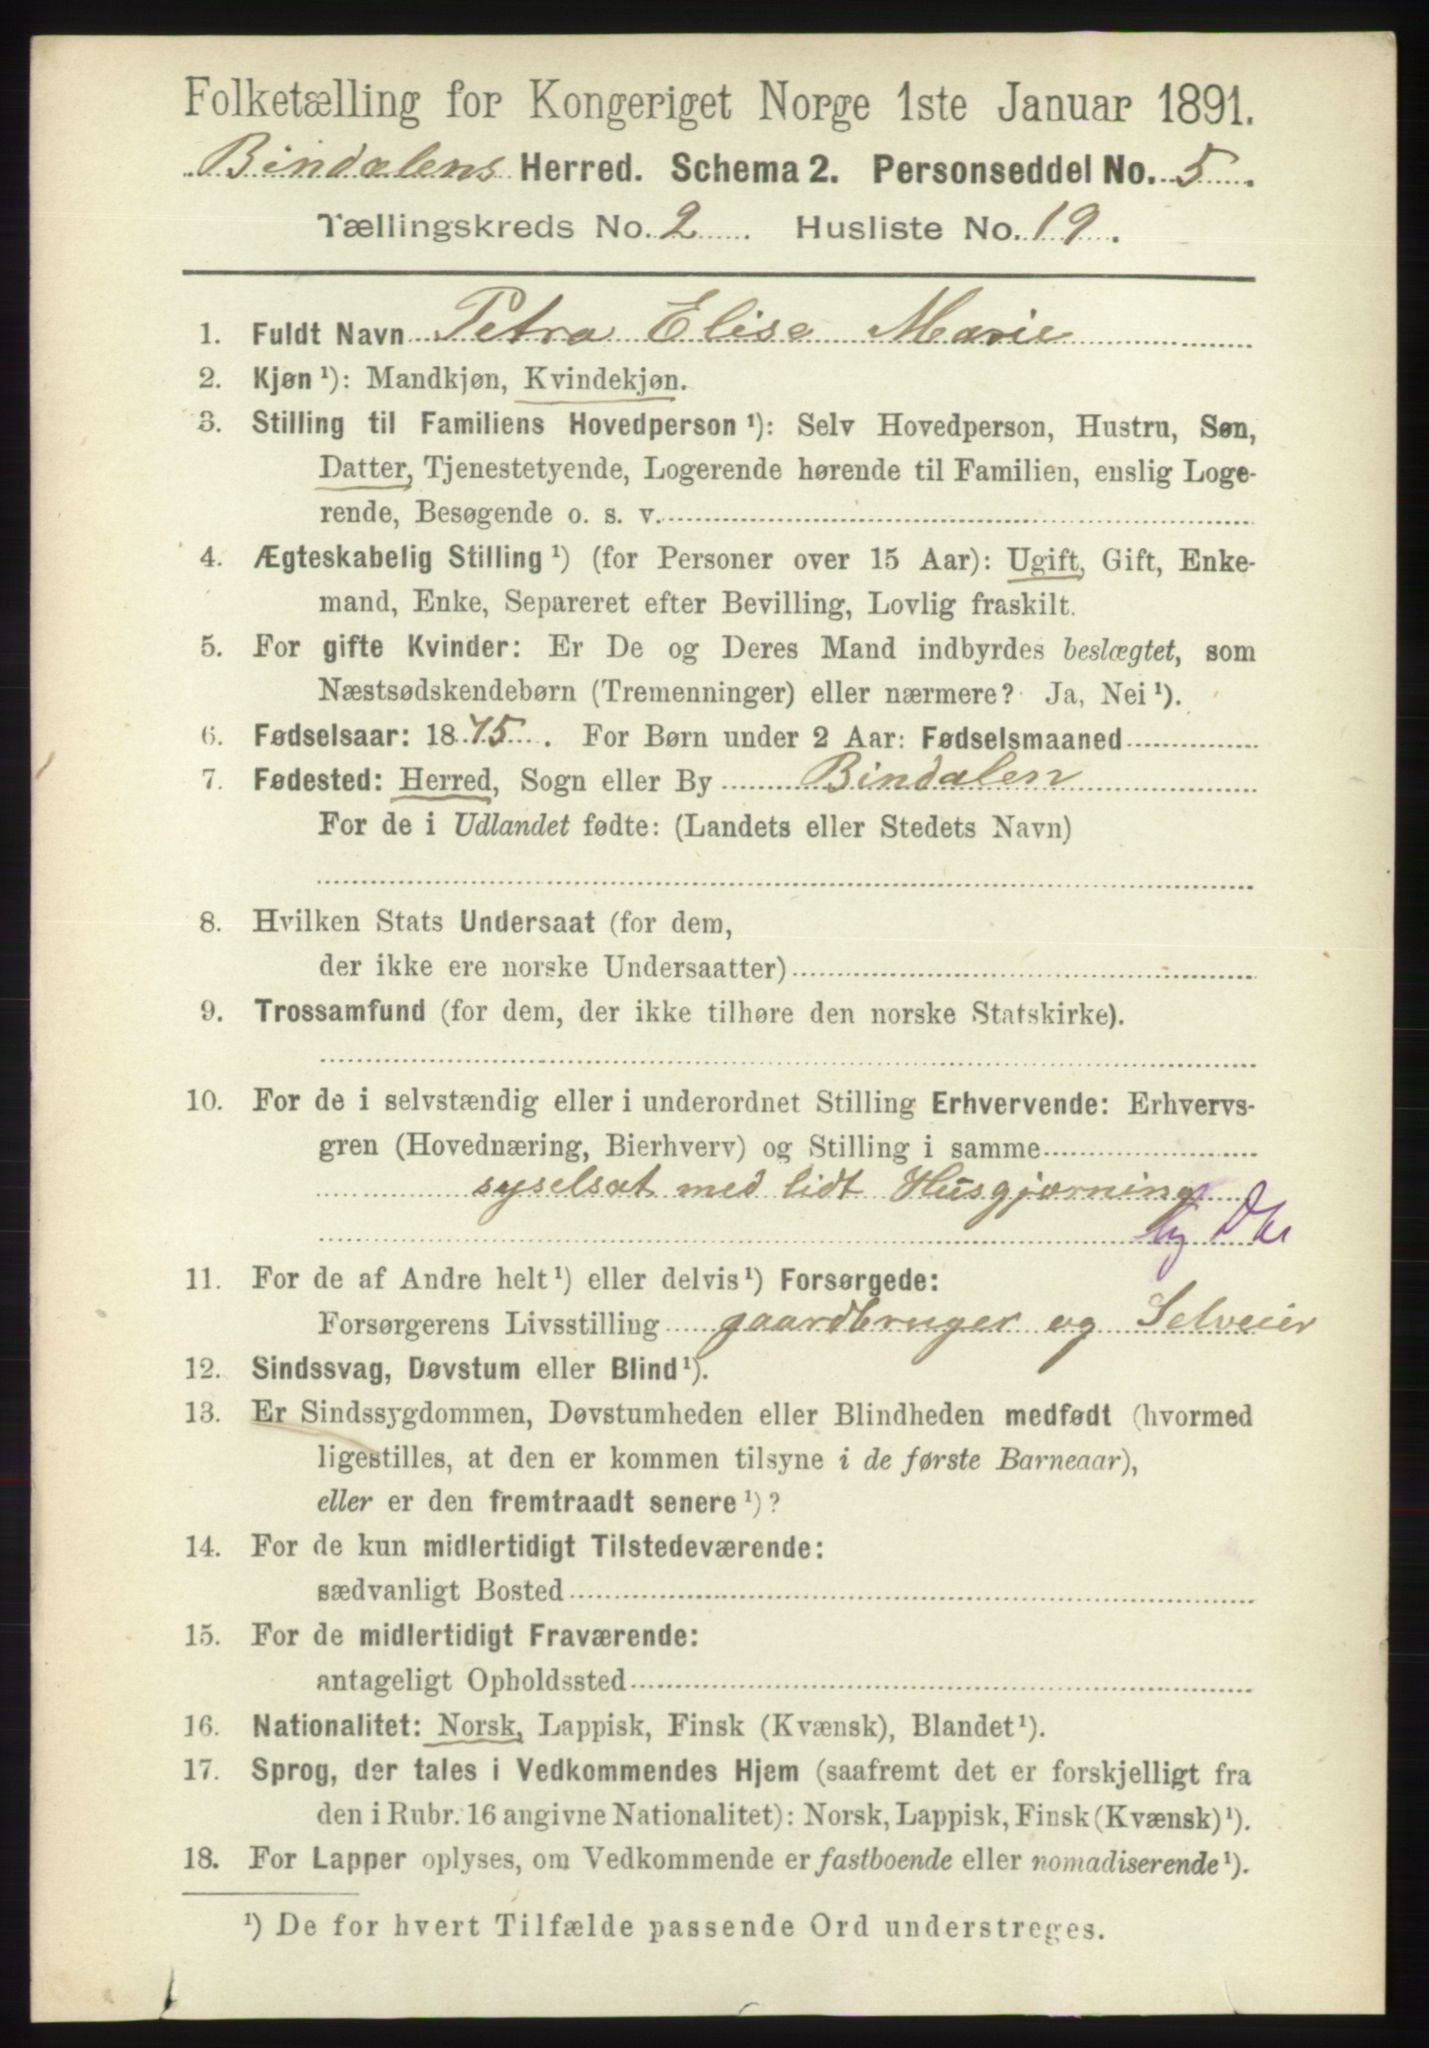 Folketælling for Kongeriget Norge 1ste Januar 1891.
Bindalens Herred. Schema 2. Personseddel No. 5.
Tællingskreds No. 2. Husliste No. 19.
1. Fuldt Navn Petra Elise Marie
2. Kjøn¹): Mandkjøn, Kvindekjøn.
3. Stilling til Familiens Hovedperson¹): Selv Hovedperson, Hustru, Søn,
Datter, Tjenestetyende, Logerende hørende til Familien, enslig Loge-
rende, Besøgende o. s. v.
4. Ægteskabelig Stilling¹) (for Personer over 15 Aar): Ugift, Gift, Enke-
mand, Enke, Separeret efter Bevilling, Lovlig fraskilt.
5. For gifte Kvinder: Er De og Deres Mand indbyrdes beslægtet, som
Næstsødskendebørn (Tremenninger) eller nærmere? Ja, Nei¹).
6. Fødselsaar: 1875. For Børn under 2 Aar: Fødselsmaaned
7. Fødested: Herred, Sogn eller By Bindalen
For de i Udlandet fødte: (Landets eller Stedets Navn)
8. Hvilken Stats Undersaat (for dem,
der ikke ere norske Undersaatter)
9. Trossamfund (for dem, der ikke tilhøre den norske Statskirke).
10. For de i selvstændig eller i underordnet Stilling Erhvervende: Erhvervs-
gren (Hovednæring, Bierhverv) og Stilling i samme
syselsat med lidt Husgjørning
11. For de af Andre helt¹) eller delvis¹) Forsørgede:
Forsørgerens Livsstilling gaardbruger og Selveier
12. Sindssvag, Døvstum eller Blind¹).
13. Er Sindssygdommen, Døvstumheden eller Blindheden medfødt (hvormed
ligestilles, at den er kommen tilsyne i de første Barneaar),
eller er den fremtraadt senere¹)?
14. For de kun midlertidigt Tilstedeværende:
sædvanligt Bosted
15. For de midlertidigt Fraværende:
antageligt Opholdssted
16. Nationalitet: Norsk, Lappisk, Finsk (Kvænsk), Blandet¹).
17. Sprog, der tales i Vedkommendes Hjem (saafremt det er forskjelligt fra
den i Rubr. 16 angivne Nationalitet): Norsk, Lappisk, Finsk (Kvænsk)¹).
18. For Lapper oplyses, om Vedkommende er fastboende eller nomadiserende¹).
¹) De for hvert Tilfælde passende Ord understreges.